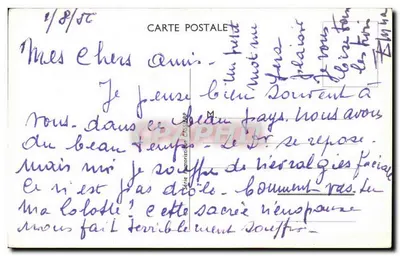 1/8/56
CARTE POSTALE
Mes Chers Amis.
Je pense bien souvent à
vous. dans ce beau pays. nous avons
du beau temps. le Dr se repose.
mais moi je souffre de névralgies faciale
Ce n'est pas drôle. Comment vas-tu
ma lolotte! cette sacrée ménopause
nous fait terriblement souffrir.
Un petit
mot me
fera
plaisir
Je vous
bise tous
les trois